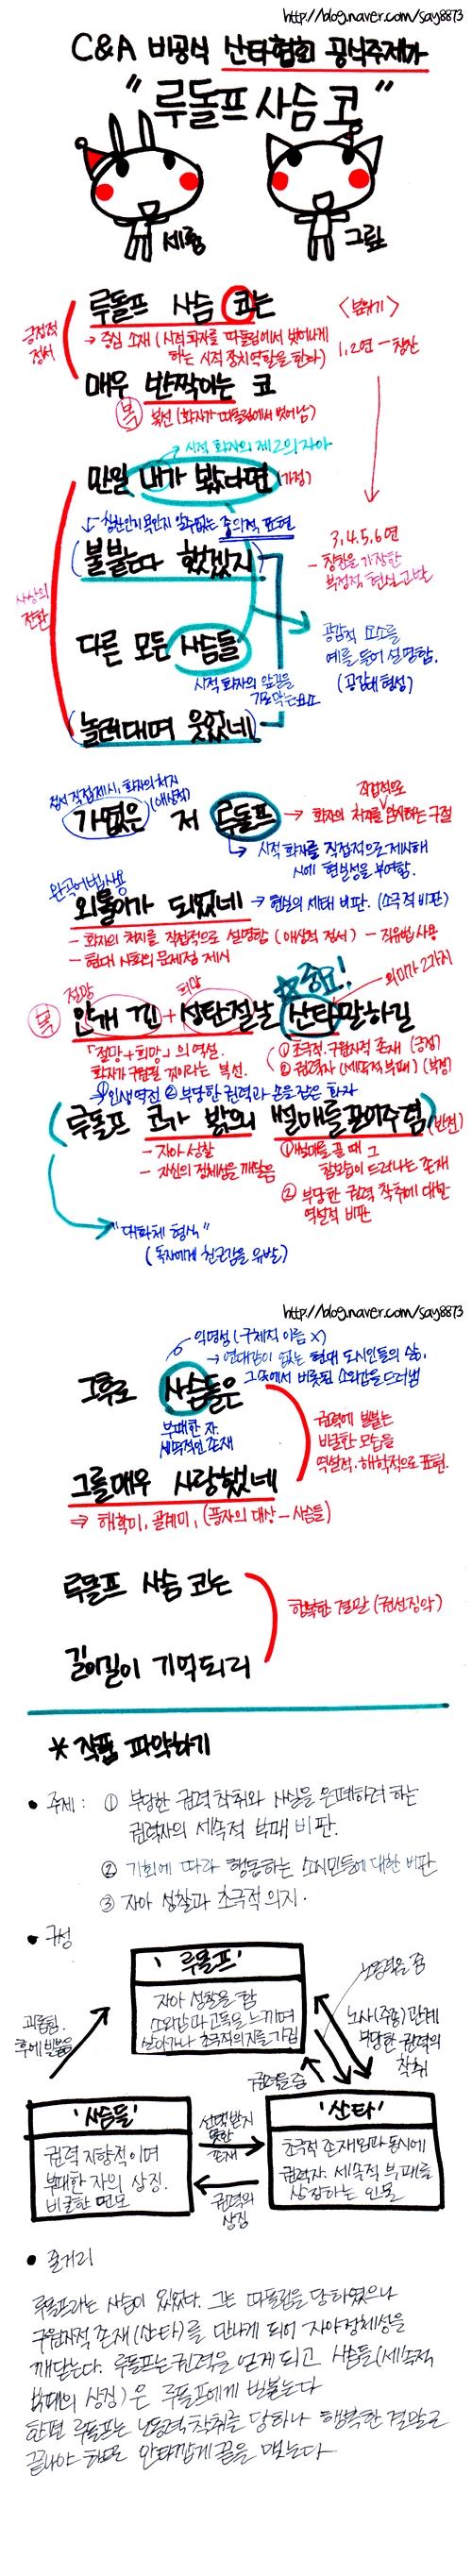 http://blog.naver.com/say8873
C&A 비공식 산타협회 공식주제가
"루돌프 사슴 코"
세륨
그맆
긍정적
정서
루돌프 사슴 코는
→ 중심 소재 (시적 화자를 따돌림에서 벗어나게
하는 시적 장치역할을 한다)
<분위기>
1, 2연 - 칭찬
매우 반짝이는 코
복
복선 (화자가 따돌림에서 벗어남)
시적 화자의 제2의 자아
만일 내가 봤다면 (가정)
↳ 칭찬인지 욕인지 알수없는 중의적 표현
(불붙는다 했겠지)
3, 4, 5, 6연
- 칭찬을 가장한
부정적 현실 고발
시상의
전환
다른 모든 사슴들
시적 화자의 앞길을
가로막는 요소
공감적 요소를
예를 들어 설명함.
(공감대 형성)
(놀려대며 웃었네)
정서 직접제시, 화자의 처지
(애상적)
가엾은 저 루돌프
직접적으로
→ 화자의 처지를 암시하는 구절
↳ 시적 화자를 직접적으로 제시해
시에 현실성을 부여함.
완곡어법사용
외톨이가 되었네 → 현실의 세태 비판. (소극적 비판)
- 화자의 처지를 직접적으로 설명함 (애상적 정서) - 직유법 사용
- 현대 사회의 문제점 제시
절망
희망
중요!
의미가 2가지
복
안개 낀 + 성탄절날 산타 말하길
「절망+희망」의 역설.
화자가 구원될 것이라는 복선.
① 초극적. 구원자적 존재 (긍정)
② 권력자 (세속적 부패) (부정)
① 인생역전 ② 부당한 권력과 손을 잡은 화자
(루돌프 코가 밝으니 썰매를 끌어주렴) (반전)
- 자아 성찰
- 자신의 정체성을 깨달음
① 썰매를 끌 때 그
참모습이 드러나는 존재
② 부당한 권력 착취에 대한
역설적 비판
"대화체 형식"
(독자에게 친근감을 유발)
http://blog.naver.com/say8873
익명성 (구체적 이름 X)
→ 연대감이 없는 현대 도시인들의 삶.
그 속에서 비롯된 소외감을 드러냄
그후로 사슴들은
부패한 자.
세속적인 존재
권력에 빌붙는
비굴한 모습을
역설적. 해학적으로 표현.
그를 매우 사랑했네
⇒ 해학미, 골계미, (풍자의 대상 - 사슴들)
루돌프 사슴 코는
행복한 결말 (권선징악)
길이길이 기억되리
* 작품 파악하기
• 주제 : ① 부당한 권력 착취와 사실을 은폐하려 하는
권력자의 세속적 부패 비판.
② 기회에 따라 행동하는 소시민들에 대한 비판
③ 자아 성찰과 초극적 의지.
• 구성
'루돌프'
자아 성찰을 함
소외감과 고통을 느끼며
살아가나 초극적의지를 가짐
괴롭힘.
후에 빌붙음
노동력을 줌
노사(주종) 관계
부당한 권력의
착취
권력을 줌
'사슴들'
권력 지향적이며
부패한 자의 상징.
비굴한 면모
선택받지
못한
존재
권력의
상징
'산타'
초극적 존재임과 동시에
권력자. 세속적 부패를
상징하는 인물
• 줄거리
루돌프라는 사슴이 있었다. 그는 따돌림을 당하였으나
구원자적 존재(산타)를 만나게 되어 자아정체성을
깨닫는다. 루돌프는 권력을 얻게 되고 사슴들(세속적
부패의 상징)은 루돌프에게 빌붙는다
한편 루돌프는 노동력 착취를 당하나 행복한 결말로
끝나야 하므로 안타깝게 끝을 맺는다